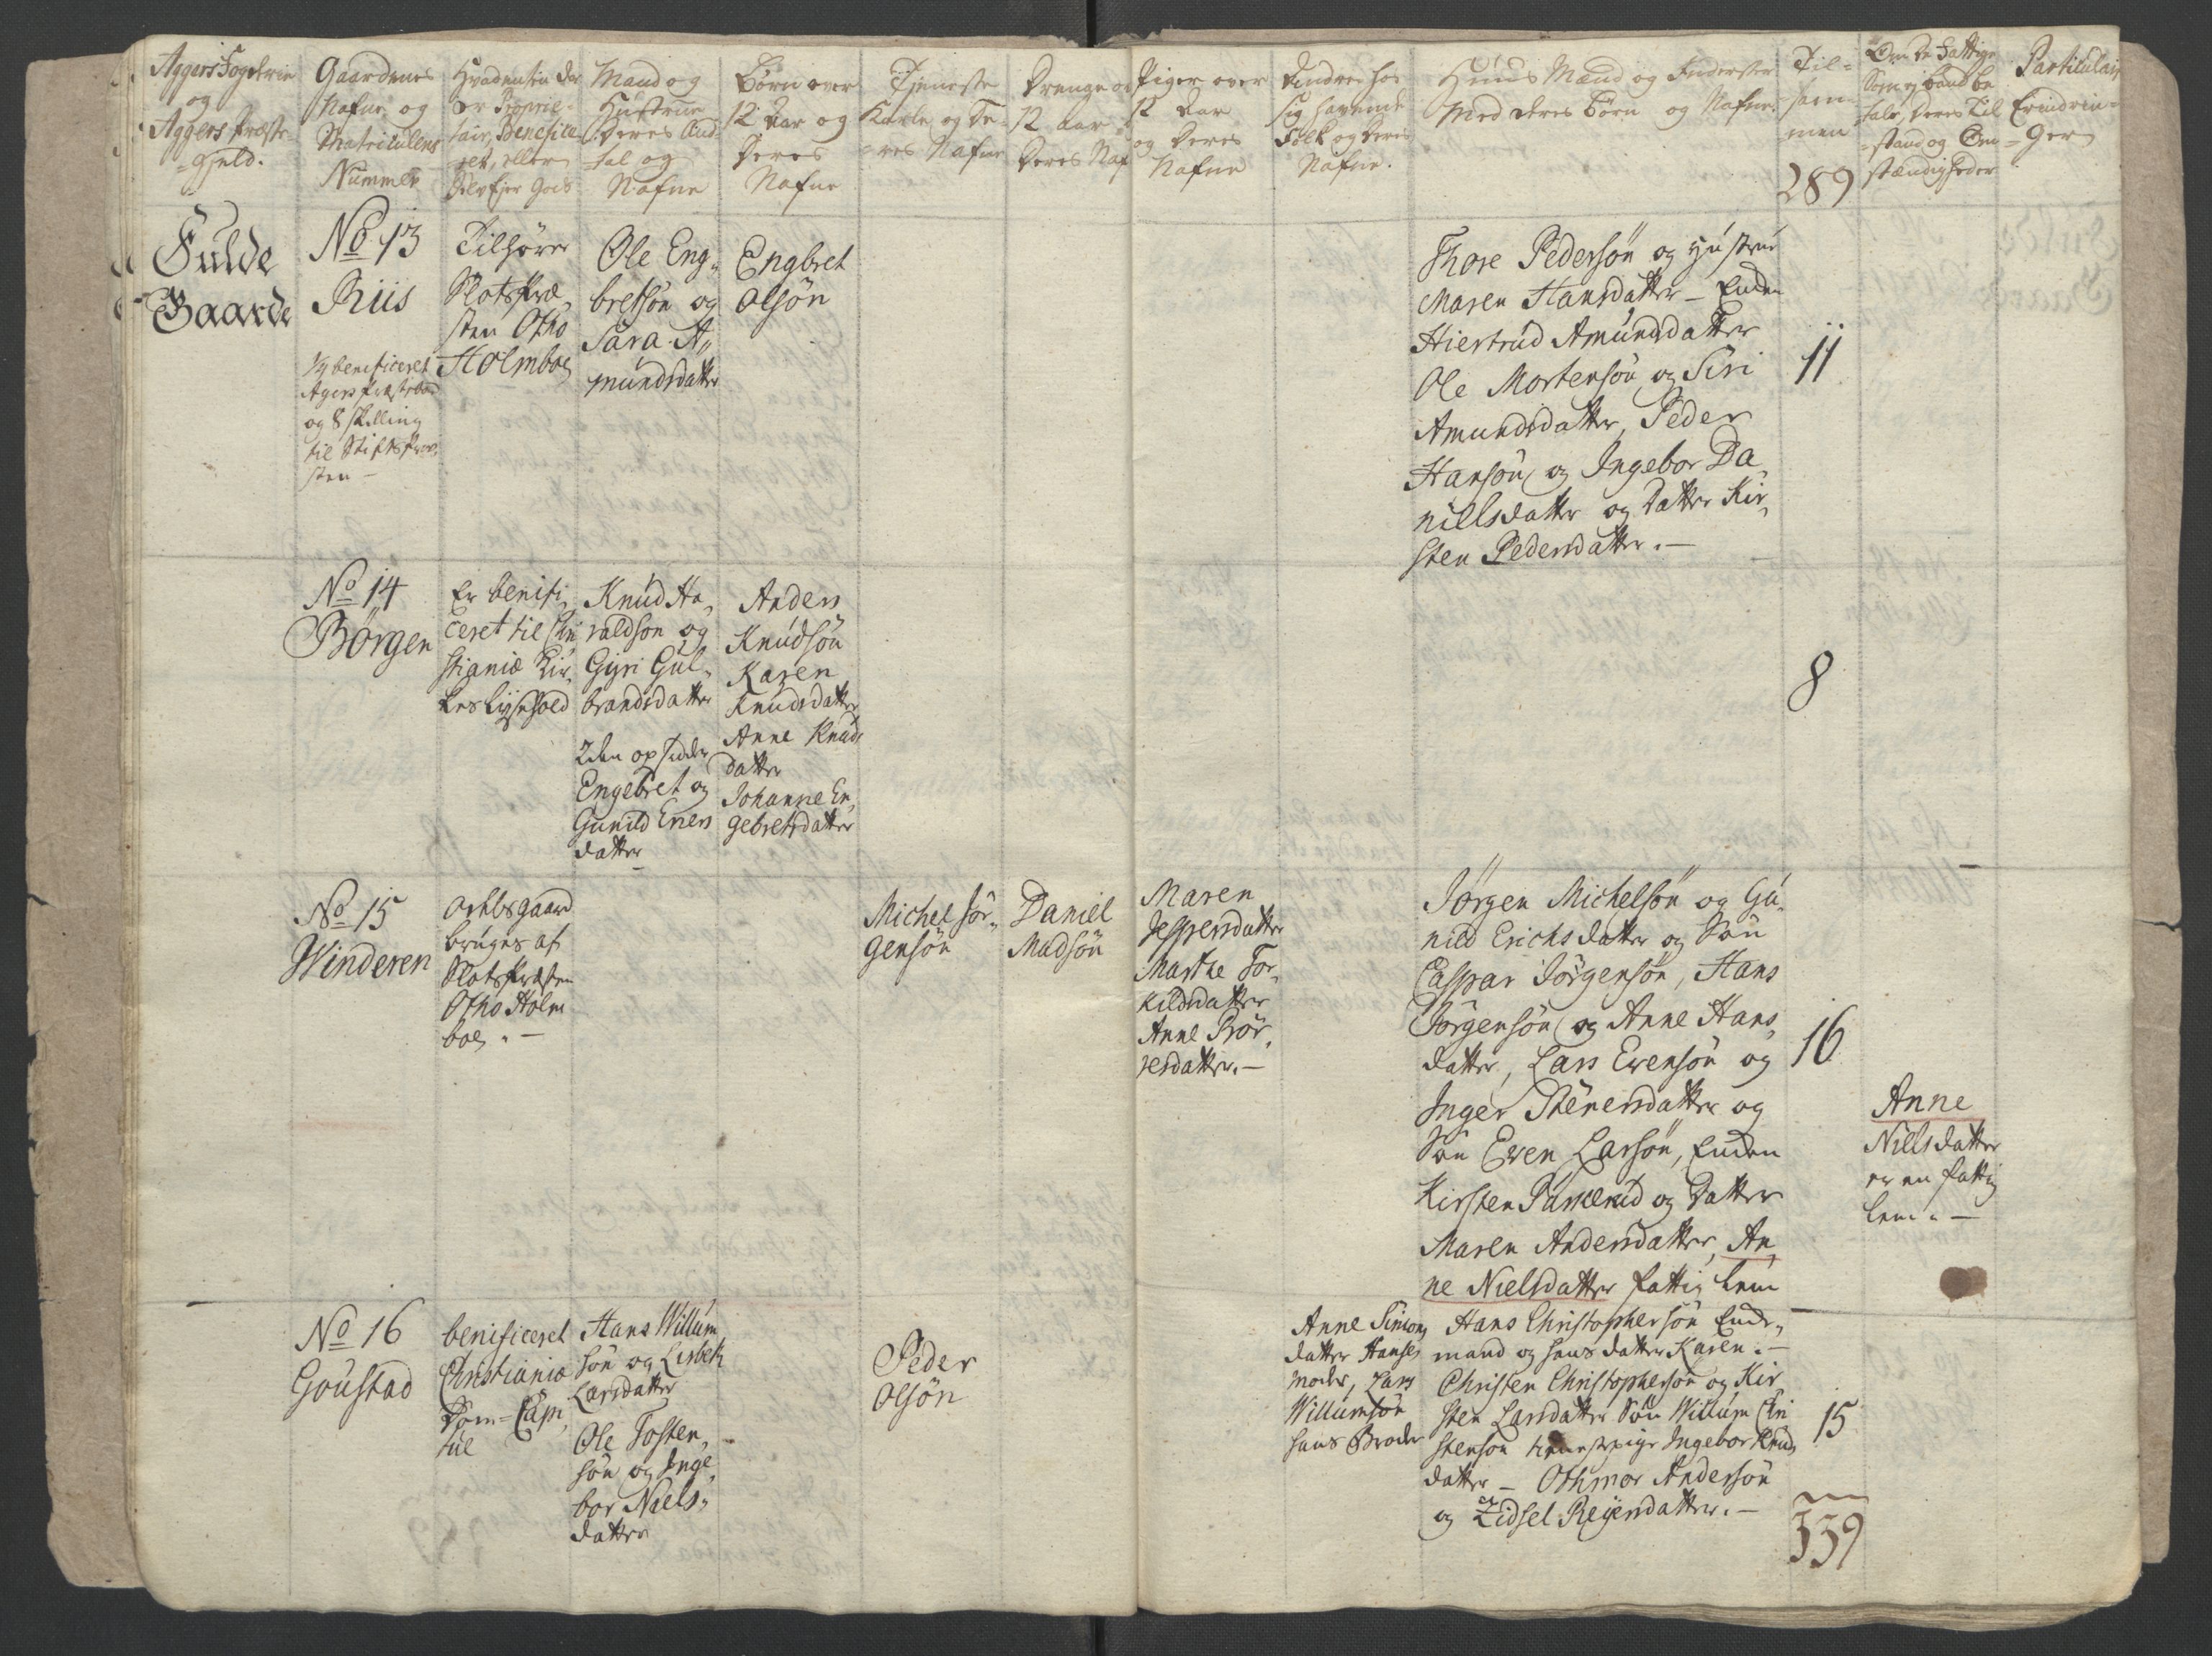 Aggers Fogderie
og
Aggers Præste-
-Gield.
Gaardenes
Nafne og
Matriculens
Nummer
Mand og
Hustrue
Deres An-
-tal og
Nafne
Børn over
12 Aar og
Deres
Nafne
Tjeneste
Karle og De-
-res Nafne
Drenge o
12 aar
Deres Naf
Piger over
12 Aar
og Deres
Nafne
Andre hos
sig havende
Folk og Deres
Nafne.
Huus Mænd og Inderster
Med deres Børn og Nafne.
Til-
sam-
men
289
Om De Fattige
stand og Om-
stændigheder
Particulair
Erindrin-
-ger
Fulde
Gaarde
No 13
Riis
1/4 beneficeret
Agers Præstebord
og 8 skilling
til Stiftsprov-
sten -
Tilhører
Slotspræ-
sten Otho
Holmboe
Ole Eng-
bretsøn og
Sara A-
mundsdatter
Engbret
Olsøn
Thore Pedersøn og Hustrue
Maren Hansdatter - Enken
Hiertrud Amundsdatter
Ole Mortensøn og Siri
Amundsdatter, Peder
Hansøn og Ingebor Da-
nielsdatter og Datter Kir-
sten Pedersdatter. -
11
No 14
Børgen
Er benifi-
ceret til Chri
stianiæ Kir-
kes Lysehold
Knud Ha-
raldson og
Gyri Gul-
brandsdatter
2den opsidder
Engebret og
Gunild Eners
datter
Anders
Knudsøn
Karen
Knudsdatter
Anne Knuds
datter
Johanne En-
gebretsdatter
8
No 15
Winderen
Ochlosgaard
bruges af
Slotspræsten
Otho Holm
boe. -
Michel Jør-
gensøn
Daniel
Madsøn
Maren
Jespersdatter
Marthe Tor-
kildsdatter
Anne Brør-
resdatter. -
Jørgen Michelsøn og Gu-
nild Erichsdatter og Søn
Caspar Jørgensøn, Hans
Jørgensøn og Anne Hans-
datter, Lars Evensøn og
Inger Stenersdatter og
Søn Even Larsøn, Enken
Kirsten og Datter
Maren Andersdatter, An-
ne Nielsdatter fattig Lem
16
Anne
Nielsdatter
er en fattig
Lem. -
No 16
Goustad
benificeret
Christianiæ
Dom-Capi-
tul
Hans Willum
søn og Lisbeth
Larsdatter
Ole Tosten-
søn og Inge-
bor Niels-
datter
Peder
Olsøn
Anne Simons
datter Hanses
moder, Lars
Willumsøn
hans Broder
Hans Christophersøn Enke-
mand og hans datter Karen. -
Christen Christophersøn og Kir
sten Larsdatter Søn Willum Chri
stensøn tienestepige Ingebor Knuds
datter - Othmar Andersøn
og Zidsel Reiersdatter. -
15
339